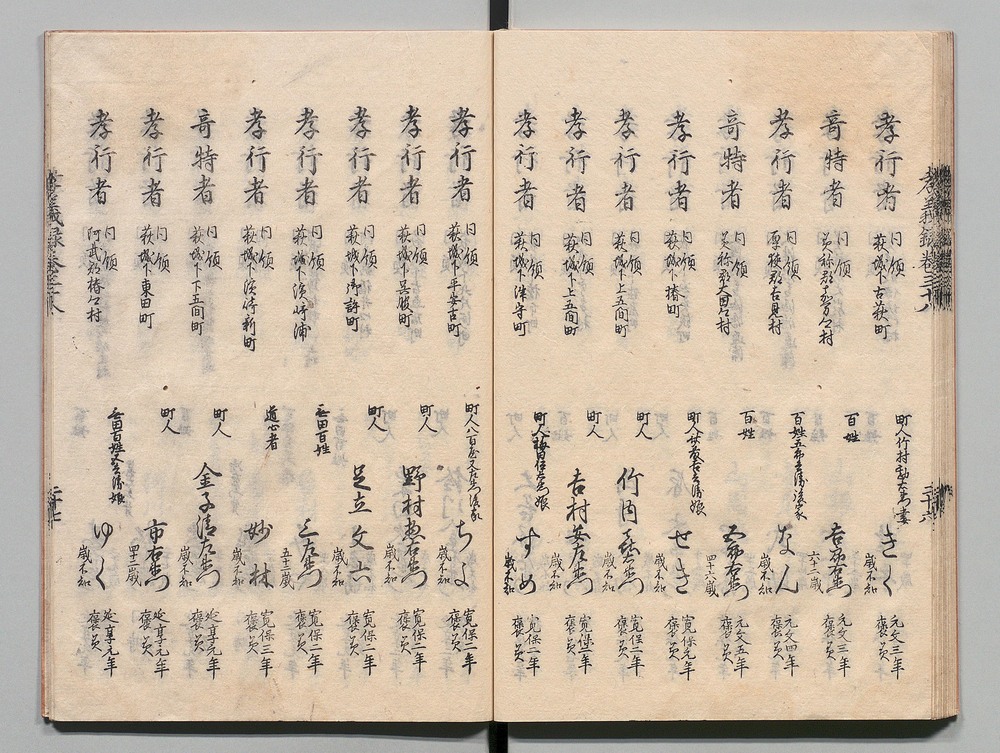 孝行者 同領 萩城下古萩町 町人竹村勘右衛門妻 きく 歳不知 元文三年 褒美
奇特者 同領 百姓 吉右衛門 六十二歳 元文三年 褒美
孝行者 同領 厚狭郡吉見村 百姓 後家 なん 歳不知 元文四年 褒美
奇特者 同領 百姓 四十六歳 元文五年 褒美
孝行者 同領 萩城下椿町 町人 娘 せき 歳不知 寛保元年 褒美
孝行者 同領 萩城下上五間町 町人 竹内 歳不知 寛保二年 褒美
孝行者 同領 萩城下上五間町 町人 吉村安左衛門 歳不知 寛保二年 褒美
孝行者 同領 萩城下津守町 町人 娘 すめ 歳不知 寛保二年 褒美
孝義録巻三十八
三十六
孝行者 同領 萩城下平安古町 町人八百屋又左衛門後家 ちよ 歳不知 寛保二年 褒美
孝行者 同領 萩城下呉服町 町人 野村惣右衛門 歳不知 寛保二年 褒美
孝行者 同領 萩城下御許町 町人 足立文六 歳不知 寛保二年 褒美
孝行者 同領 萩城下浜崎浦 無田百姓 五十二歳 寛保二年 褒美
孝行者 同領 萩城下浜崎新町 道心者 妙林 歳不知 寛保三年 褒美
奇特者 同領 萩城下下五間町 町人 金子清左衛門 歳不知 延享元年 褒美
孝行者 同領 萩城下東田町 町人 市右衛門 四十二歳 延享元年 褒美
孝行者 同領 阿武郡椿村 無田百姓 娘 ゆく 歳不知 延享元年 褒美
孝義録巻三十八
三十七